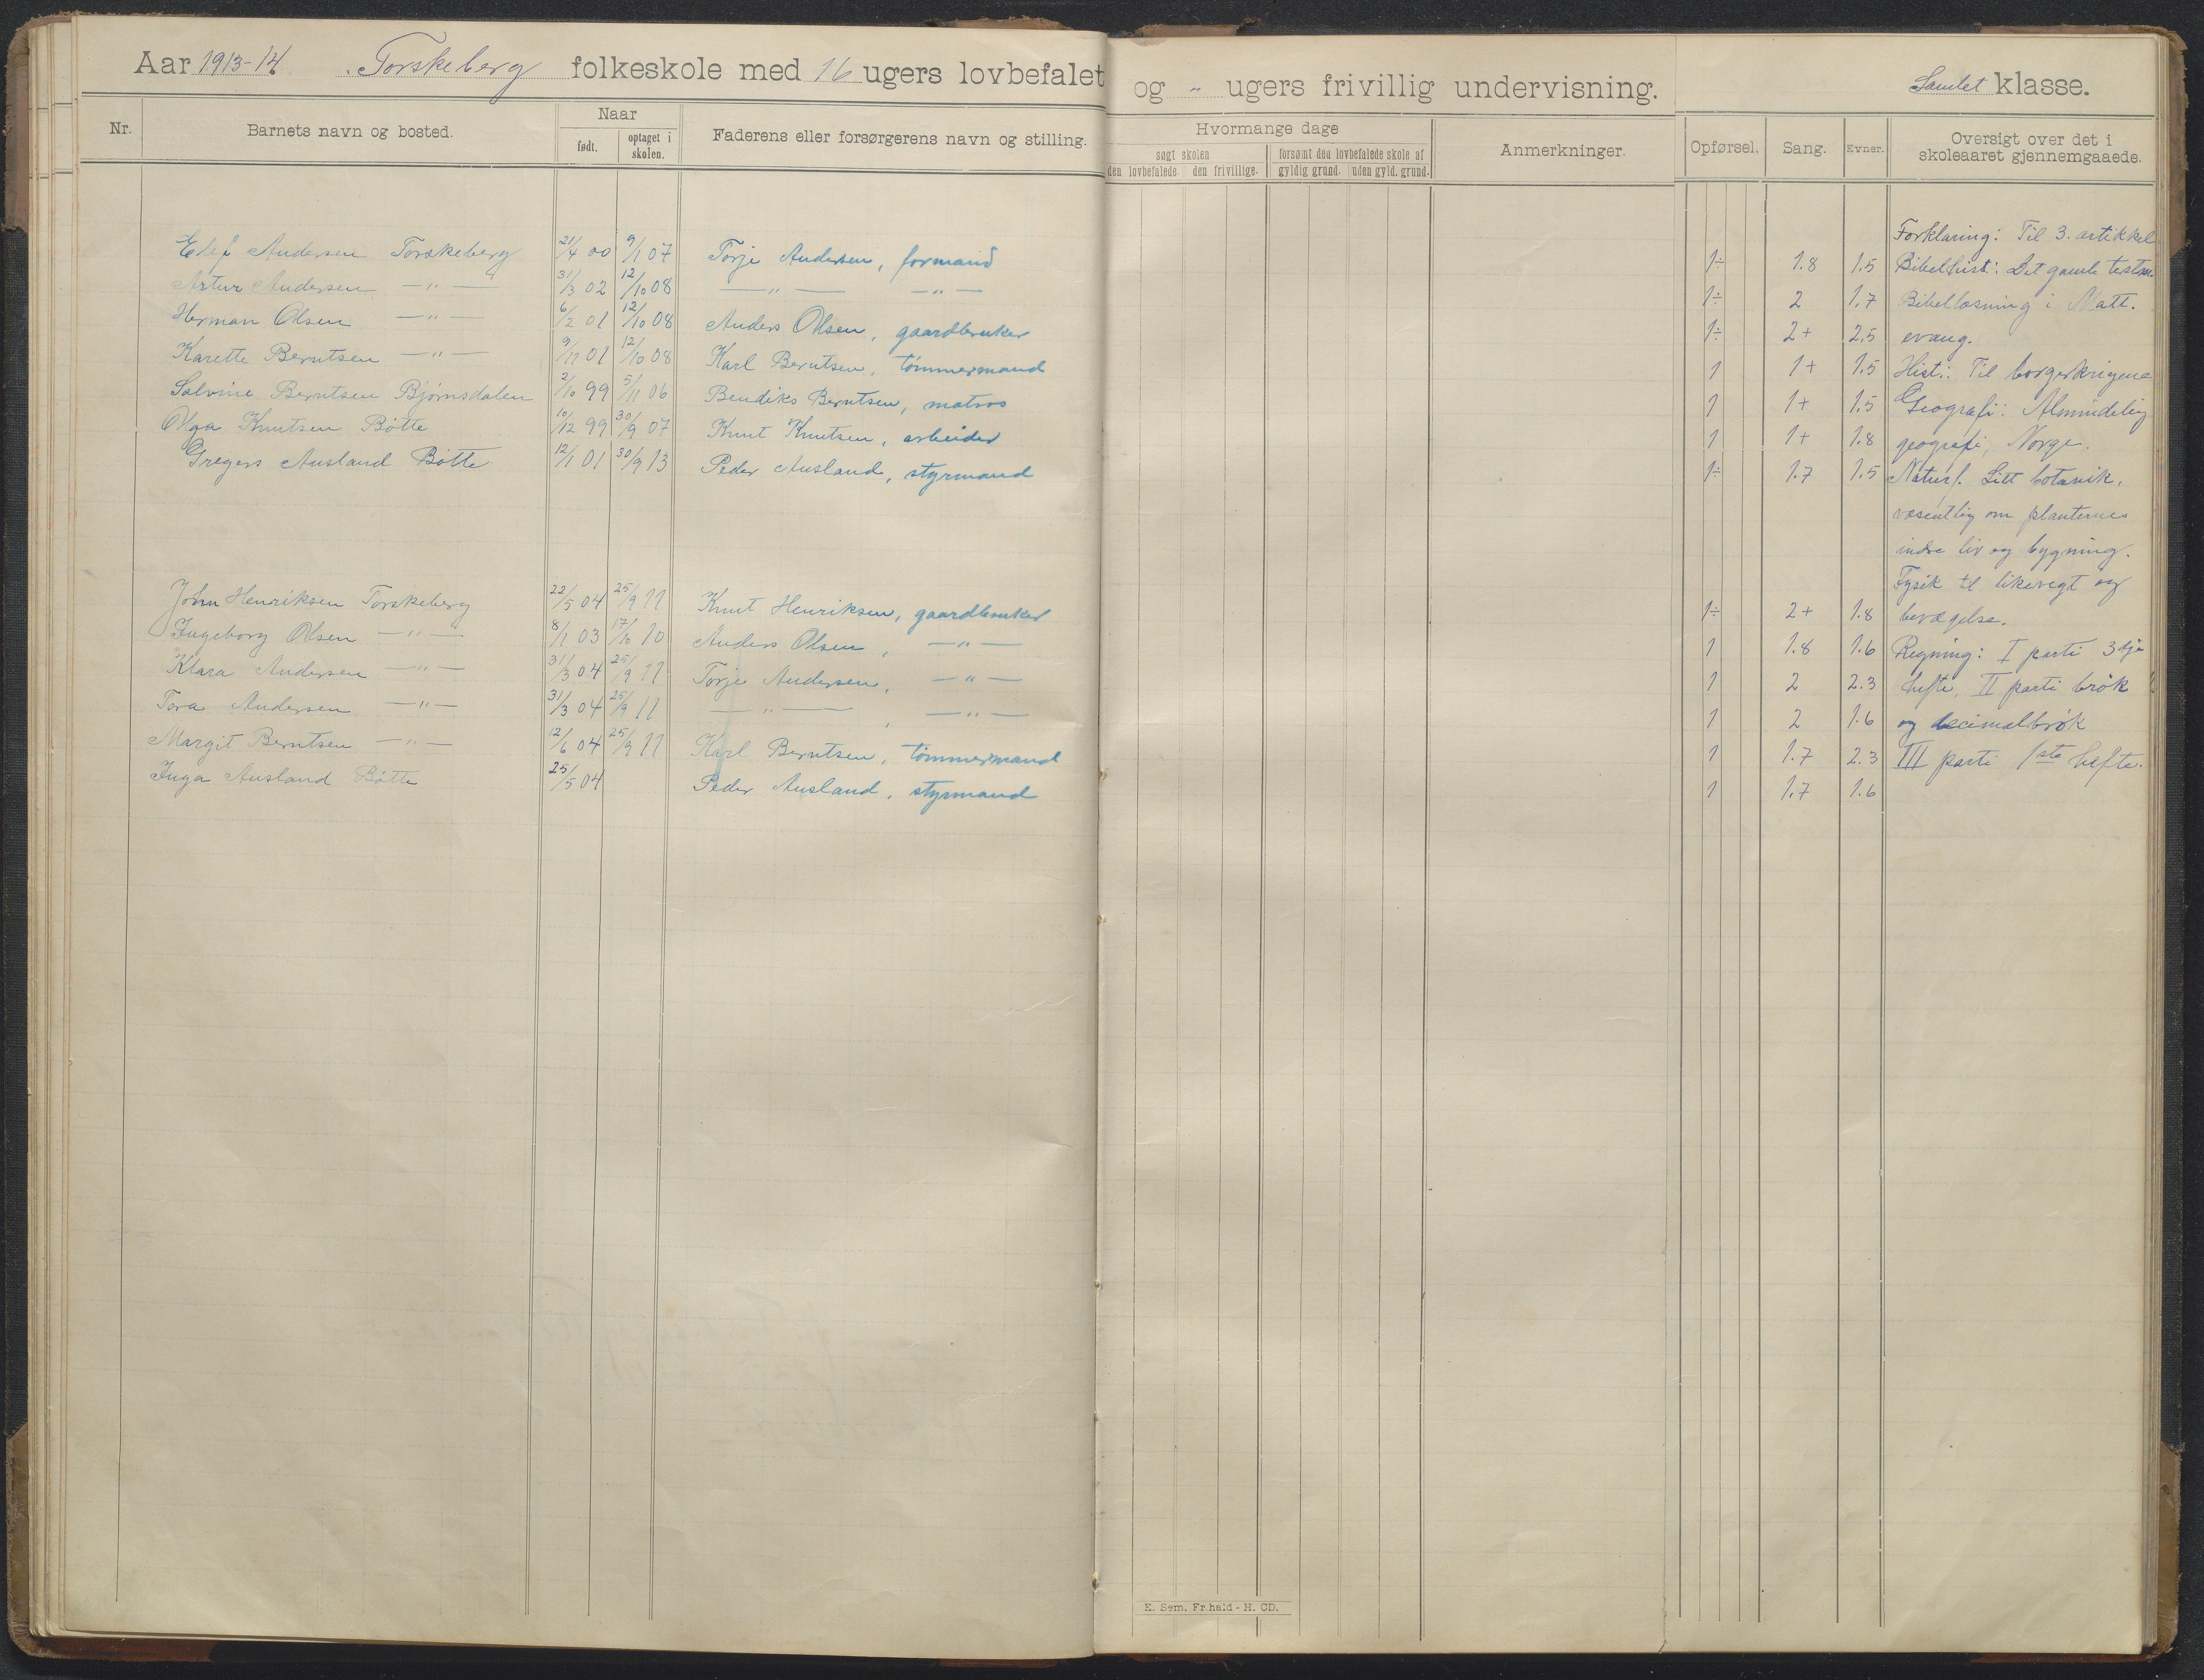 Aar 1913-14 Torskeberg folkeskole med 16 ugers lovbefalet og " ugers frivillig undervisning. Samlet klasse.
Nr. Barnets navn og bosted. Naar født. optaget i skolen. Faderens eller forsørgerens navn og stilling. Hvormange dage søgt skolen den lovbefalede den frivillige. forsømt den lovbefalede skole af gyldig grund. uden gyld. grund. Anmerkninger. Opførsel. Sang. Evner. Oversigt over det i skoleaaret gjennemgaaede.
Elef Andersen Torskeberg 21/4 00 9/1 07 Torje Andersen, formand 1÷ 1.8 1.5
Artur Andersen —"— 31/3 02 12/10 08 —"— —"— 1÷ 2 1.7
Herman Olsen —"— 6/2 01 12/10 08 Anders Olsen, gaardbruker 1÷ 2+ 2.5
Karette Berntsen —"— 9/12 01 12/10 08 Karl Berntsen, tømmermand 1 1+ 1.5
Salvine Berntsen Bjørnsdalen 2/10 99 5/11 06 Bendiks Berntsen, matros 1 1+ 1.5
Olga Knutsen Bötte 10/12 99 30/9 07 Knut Knutsen, arbeider 1 1+ 1.8
Gregers Ausland Bötte 12/1 01 30/9 13 Peder Ausland, styrmand 1÷ 1.7 1.5
John Henriksen Torskeberg 22/5 04 25/9 11 Knut Henriksen, gaardbruker 1÷ 2+ 1.8
Ingeborg Olsen —"— 8/1 03 17/10 10 Anders Olsen, —"— 1 1.8 1.6
Klara Andersen —"— 31/3 04 25/9 11 Torje Andersen, —"— 1 2 2.3
Tora Andersen —"— 31/3 04 25/9 11 —"—, —"— 1 2 1.6
Margit Berntsen —"— 12/6 04 25/9 11 Karl Berntsen, tømmermand 1 1.7 2.3
Inga Ausland Bötte 25/5 04 Peder Ausland, styrmand 1 1.7 1.6
Forklaring: Til 3. artikkel
Bibelhist: Det gamle testm.
Bibellæsning i Matt.
evang.
Hist: Til borgerkrigene
Geografi: Almindelig
geografi, Norge.
Naturf. Litt botanik,
væsentlig om planternes
indre liv og bygning.
Fysik til likevegt og
bevægelse.
Regning: I parti 3dje
hefte, II parti brøk
og decimalbrøk
III parti 1ste hefte.
E. Sem. Fr.hald - H. CD.